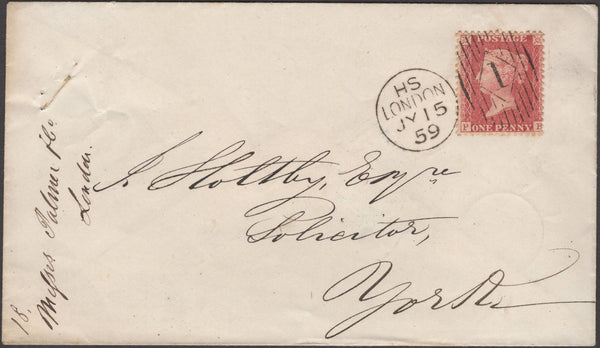 POSTAGE
1
ONE PENNY
HS
LONDON
JY 15
59
J. Holtby, Esqre
Solicitor,
York
18.
Messrs Palmer & Co
London.